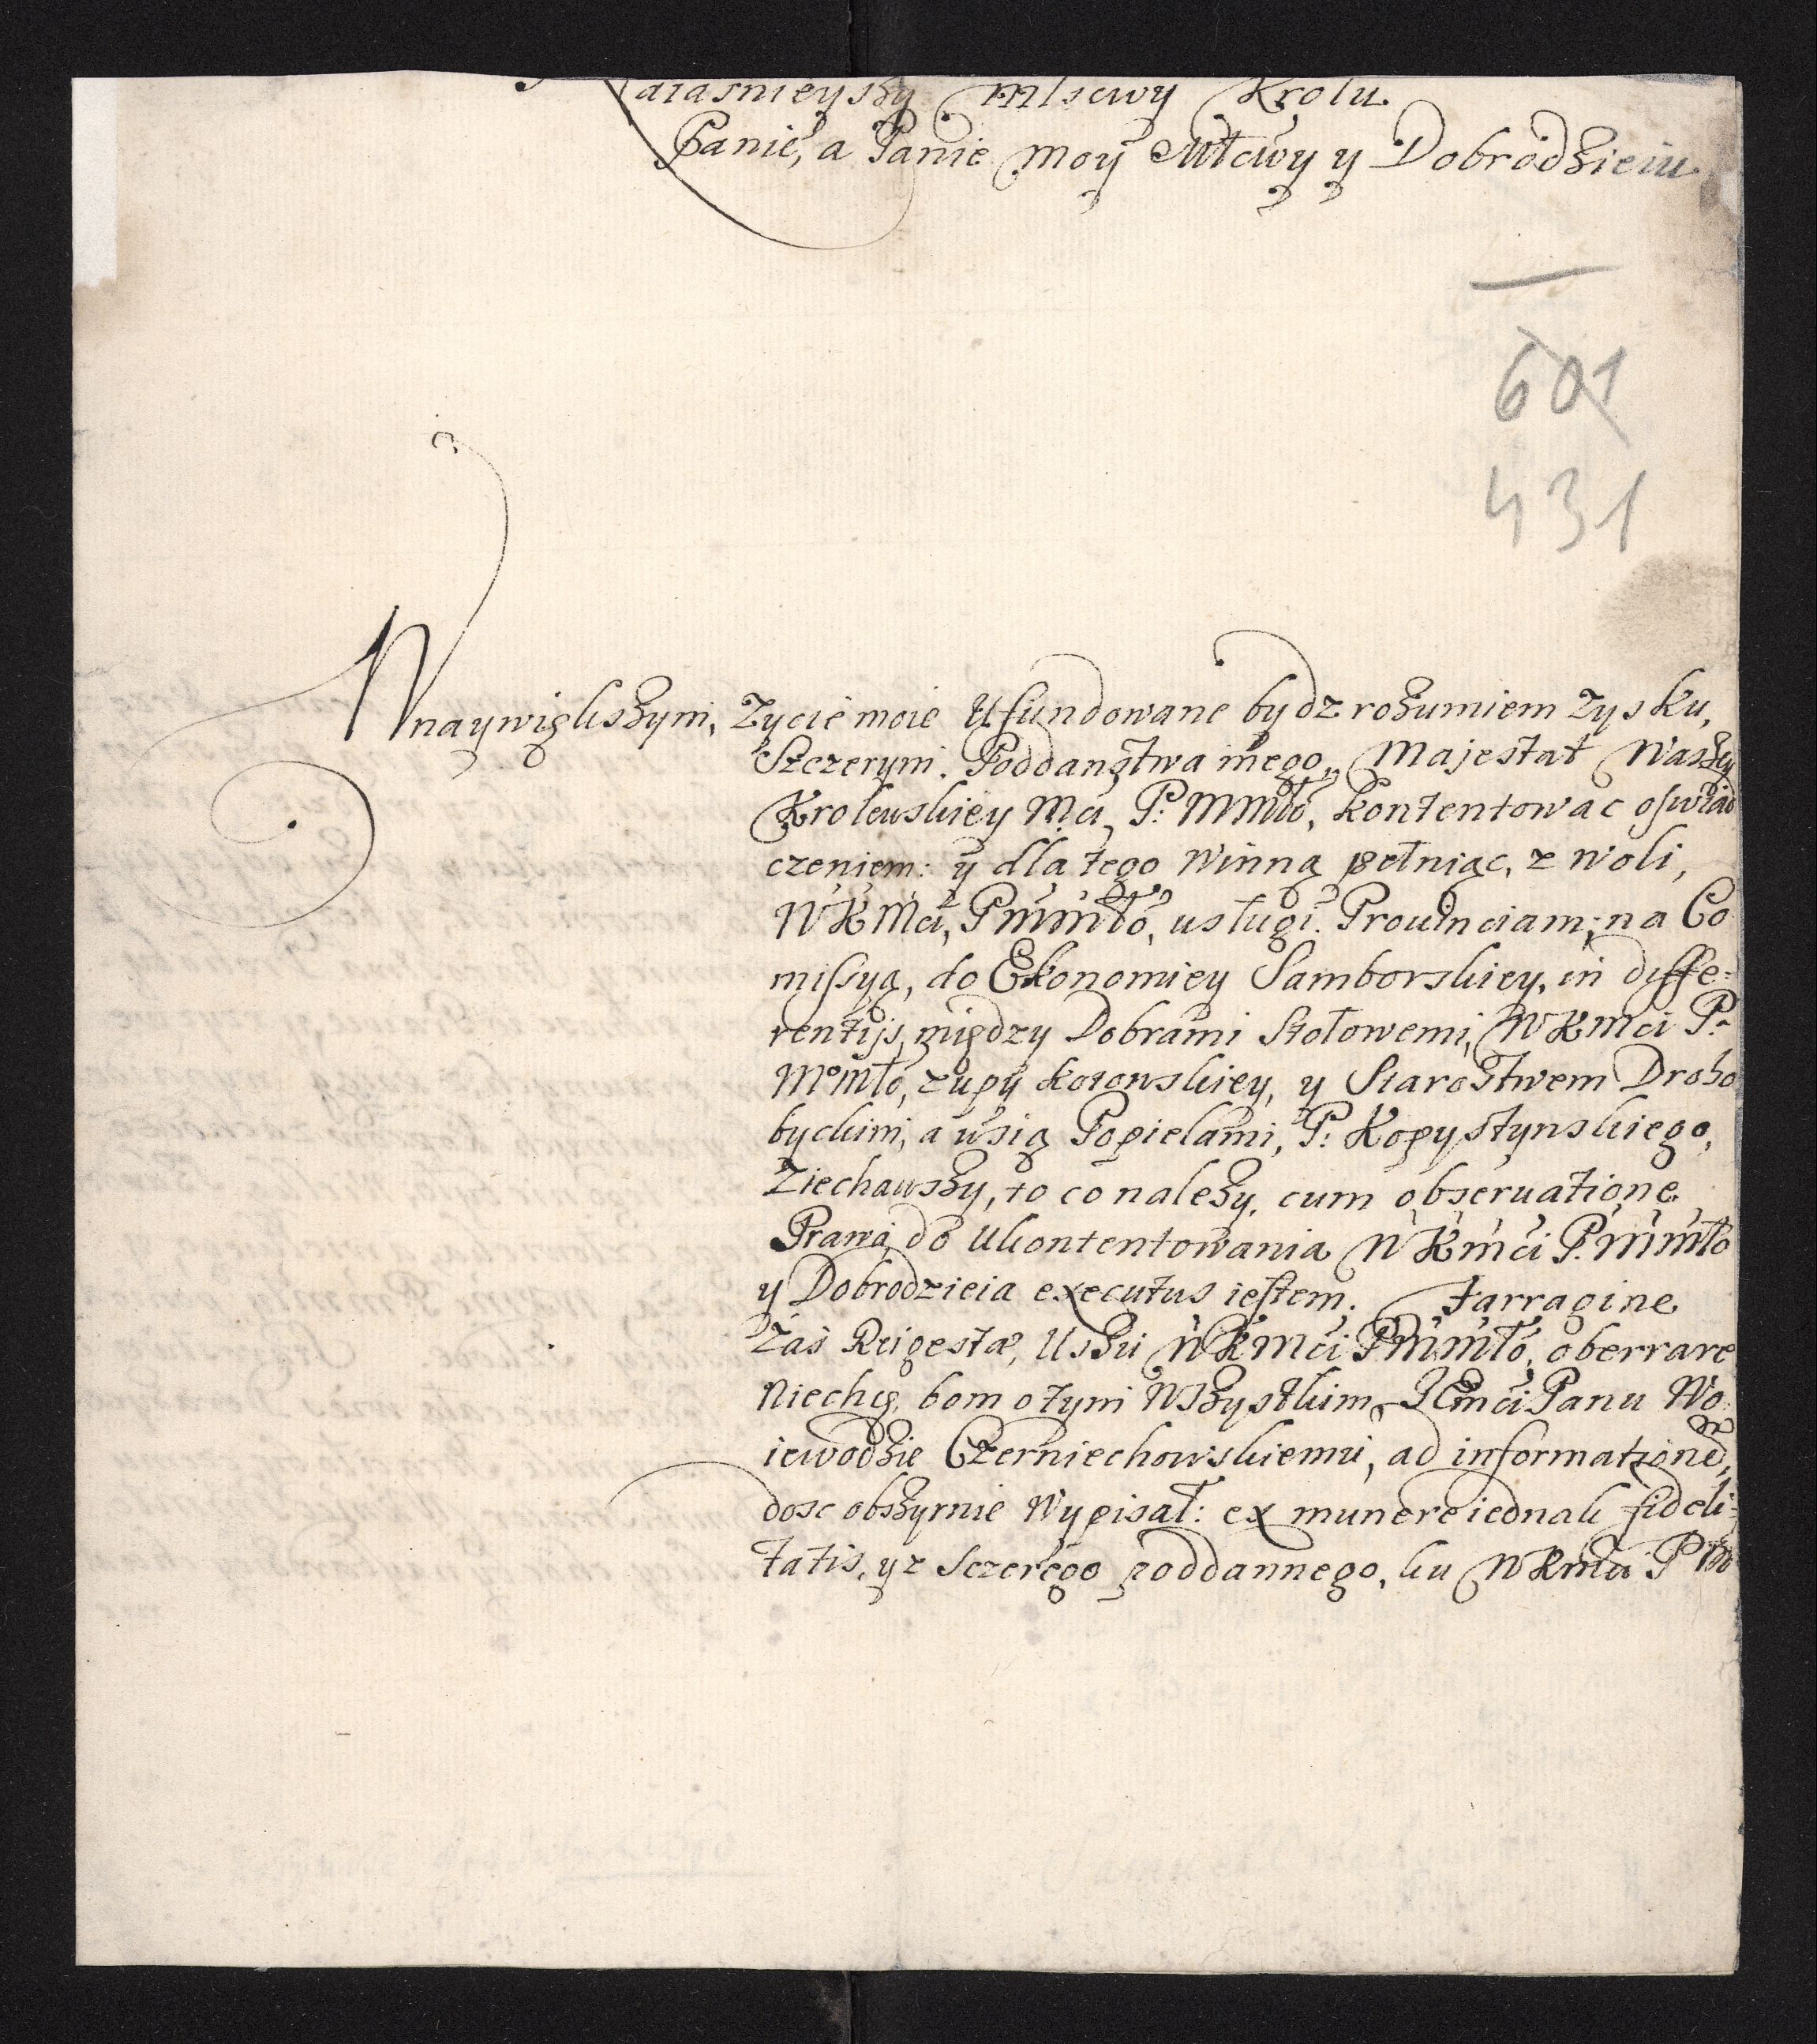 Naiasnieyszy Mlscwy Krolu.
Panie, a Panie moy Młcwy y Dobrodzieiu
601
431
W naywiększym, Zycie moie Ufundowane bydz rozumiem zysku,
Szczerym. Poddanstwa mego, Majestat Waszy
Krolewskiey Mci, P: MMło, kontentowac oswiad
czeniem: y dla tego winną pełniąc, z woli,
WKMci, PMMło, usługi. Prouinciam; na Co
missyą, do Ekonomiey Samborskiey, in diffe=
rentijs, między Dobrami Stołowemi, WKMci P:
MoMło, zupy kotowskiey, y Starostwem Droho
byckim, a wsią Popielami, P: Kopystynskiego,
Ziechawszy, to co nalezy, cum obseruatione
Prawa, do Ukontentowania WKMci P.MMło
y Dobrodzieia executus iestem. Farragine
Zas Rei gestæ, Uszu WKMci PMMło, oberrare
Niechcę, bom o tym Wszystkim JEmci Panu Wo:
iewodzie Czerniechowskiemu, ad informatione,
dosc obszyrnie Wypisał: ex munere iednak fideli=
tatis, y z Sczerego poddannego, ku WKMci P Mo